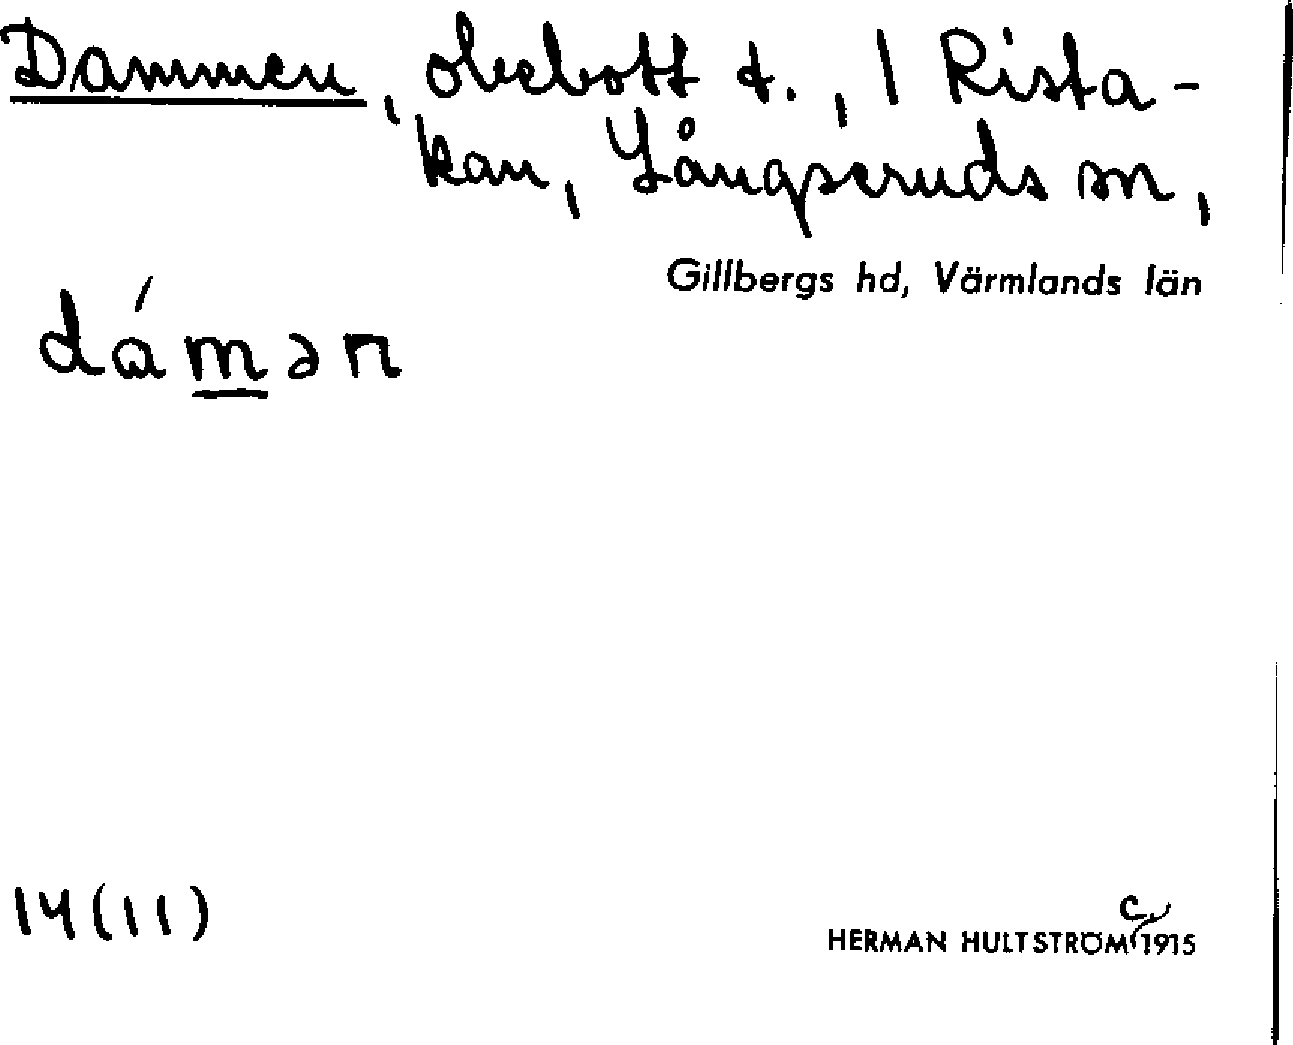 Dammen, obebott t., 1 Rista-
kan, Långseruds sn,
Gillbergs hd, Värmlands län
dámən
14(11)
c.
HERMAN HULTSTRÖM 1915